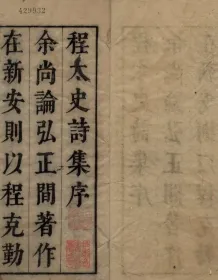 429832
程太史詩集序
余尚論弘正間著作
在新安則以程克勤